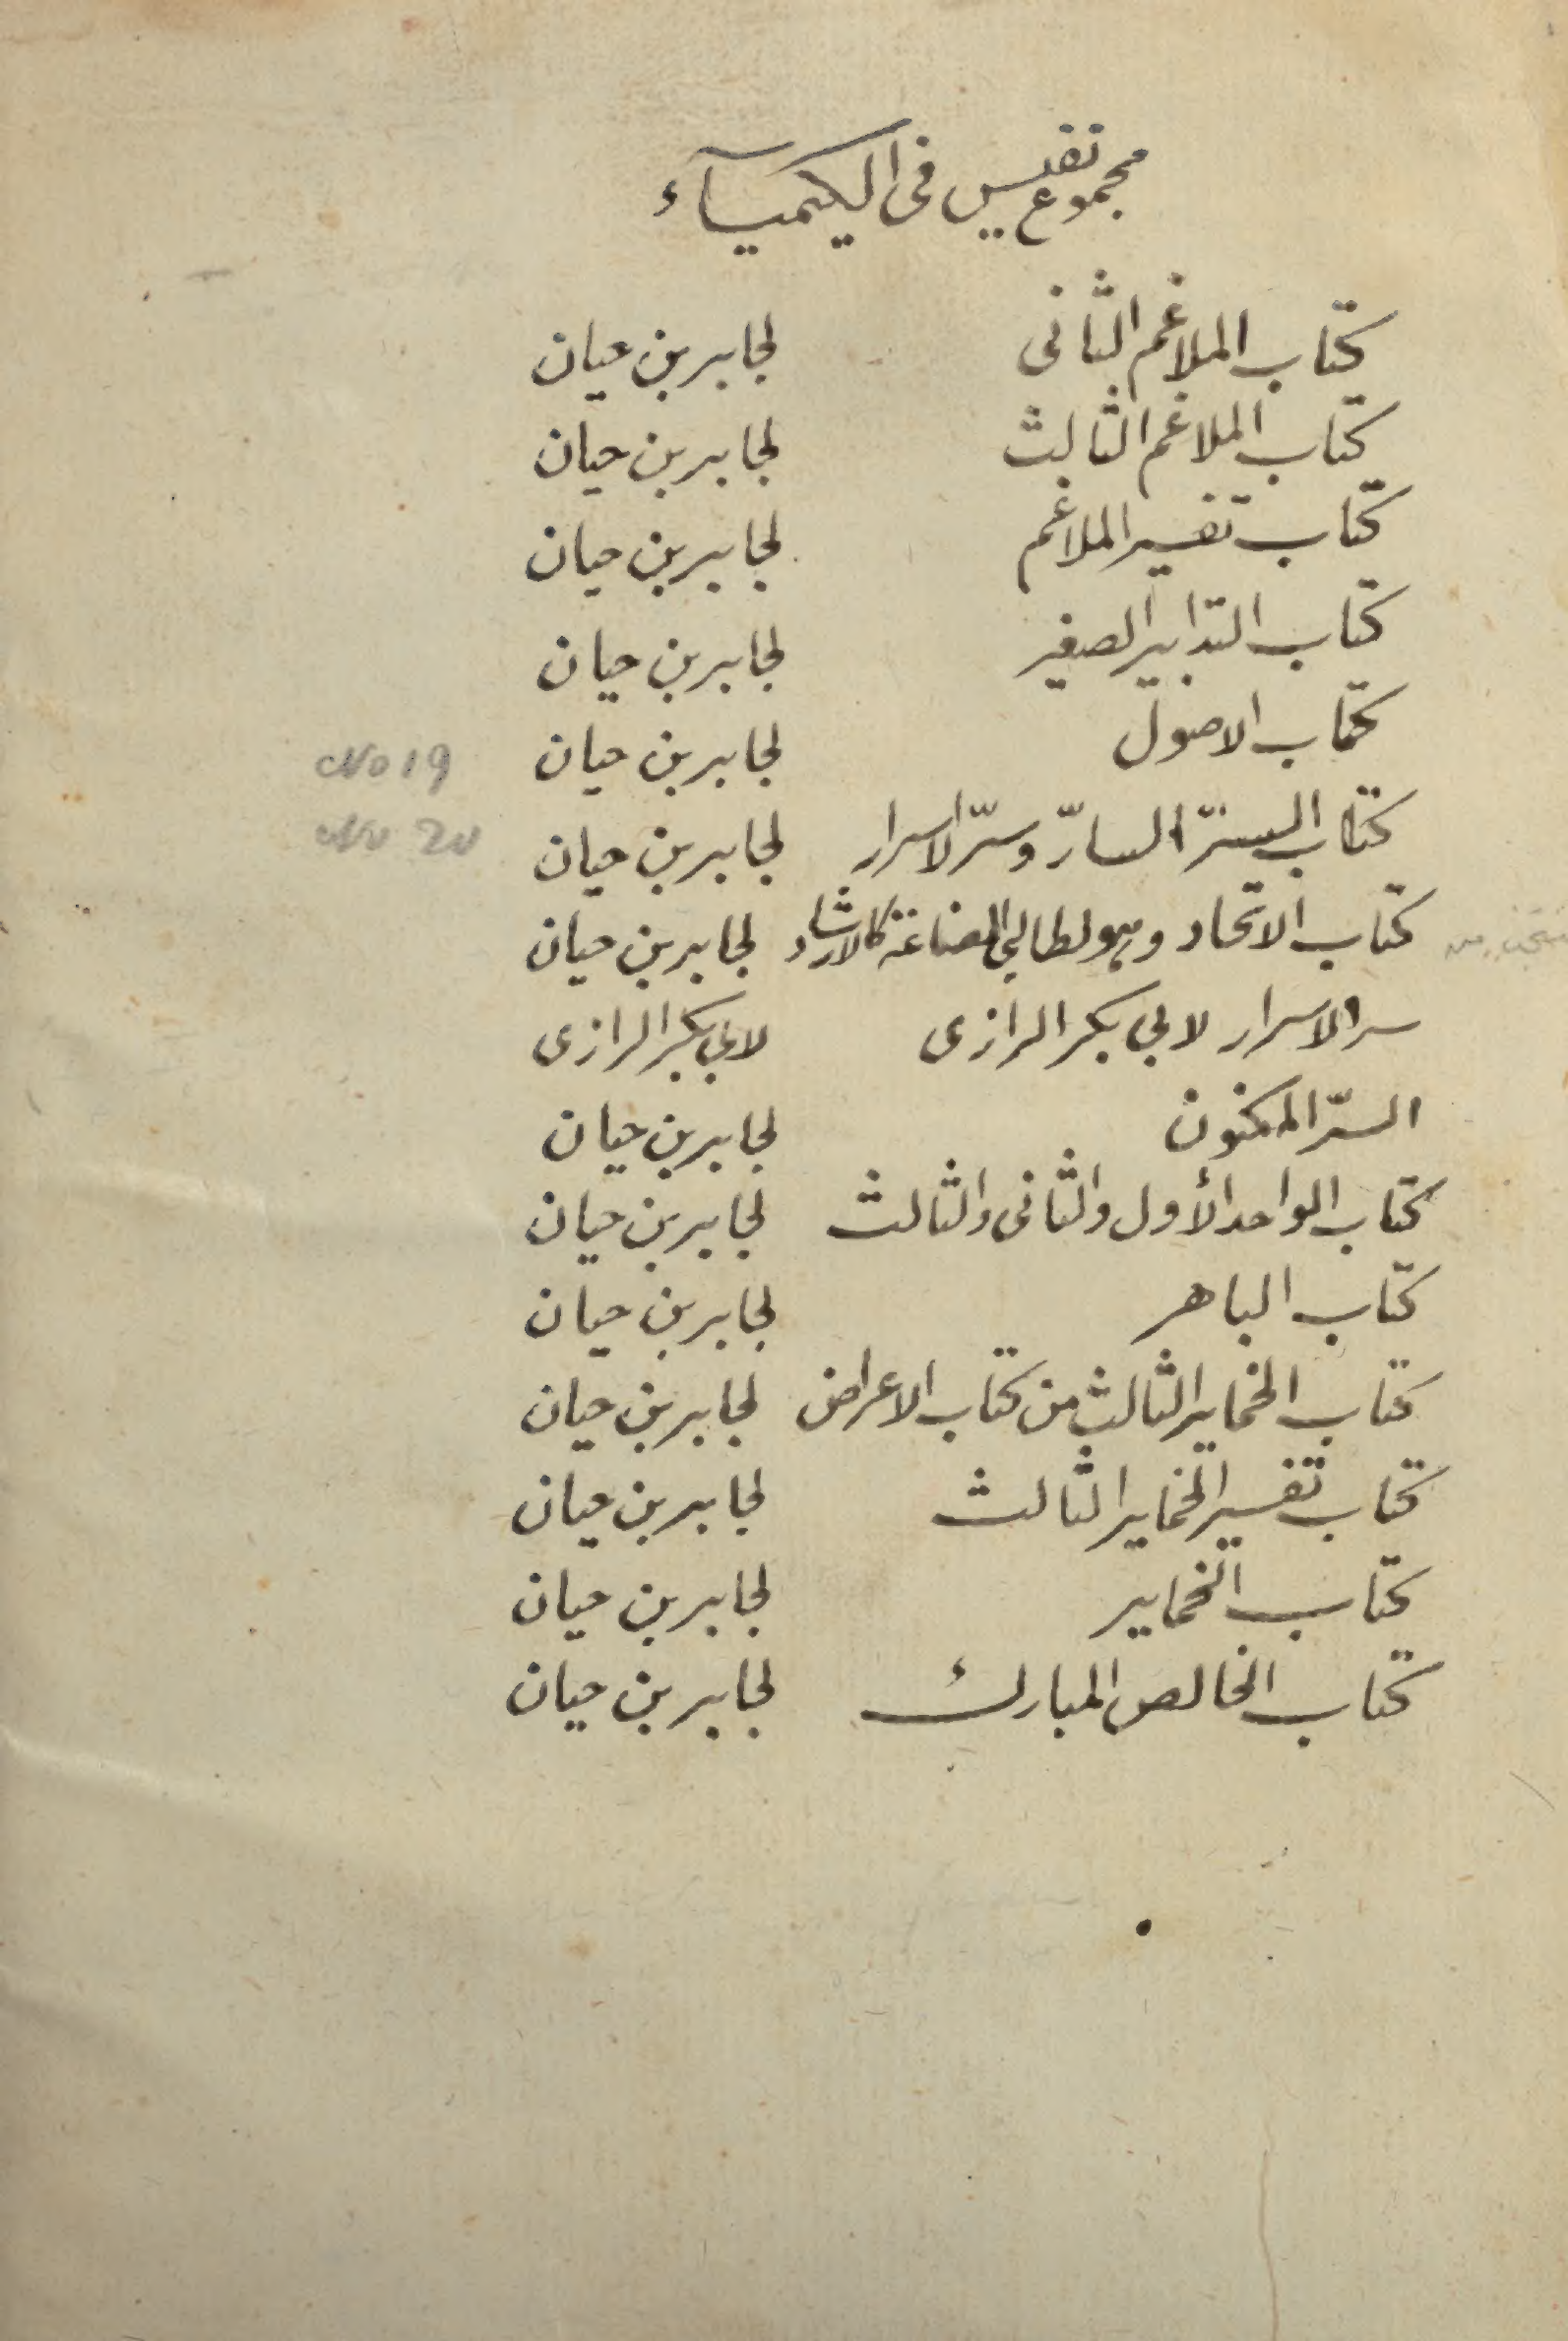 مجموع نفيس فى الكيميآء
كتاب الملاغم الثانى لجابر بن حيان
كتاب الملاغم الثالث لجابر بن حيان
كتاب تفسير الملاغم لجابر بن حيان
كتاب التدابير الصغير لجابر بن حيان
كتاب الاصول لجابر بن حيان No 19
كتاب السرّ السارّ وسرّ الاسرار لجابر بن حيان No 20
كتاب الاتحاد وهو لطالبى الصناعة كالارشاد لجابر بن حيان
سر الاسرار لابي بكر الرازى لابي بكر الرازى
السرّ المكنون لجابر بن حيان
كتاب الواحد الأول والثانى والثالث لجابر بن حيان
كتاب الباهر لجابر بن حيان
كتاب الخماير الثالث من كتاب الاعراض لجابر بن حيان
كتاب تفسير الخماير الثالث لجابر بن حيان
كتاب الخماير لجابر بن حيان
كتاب الخالص المبارك لجابر بن حيان